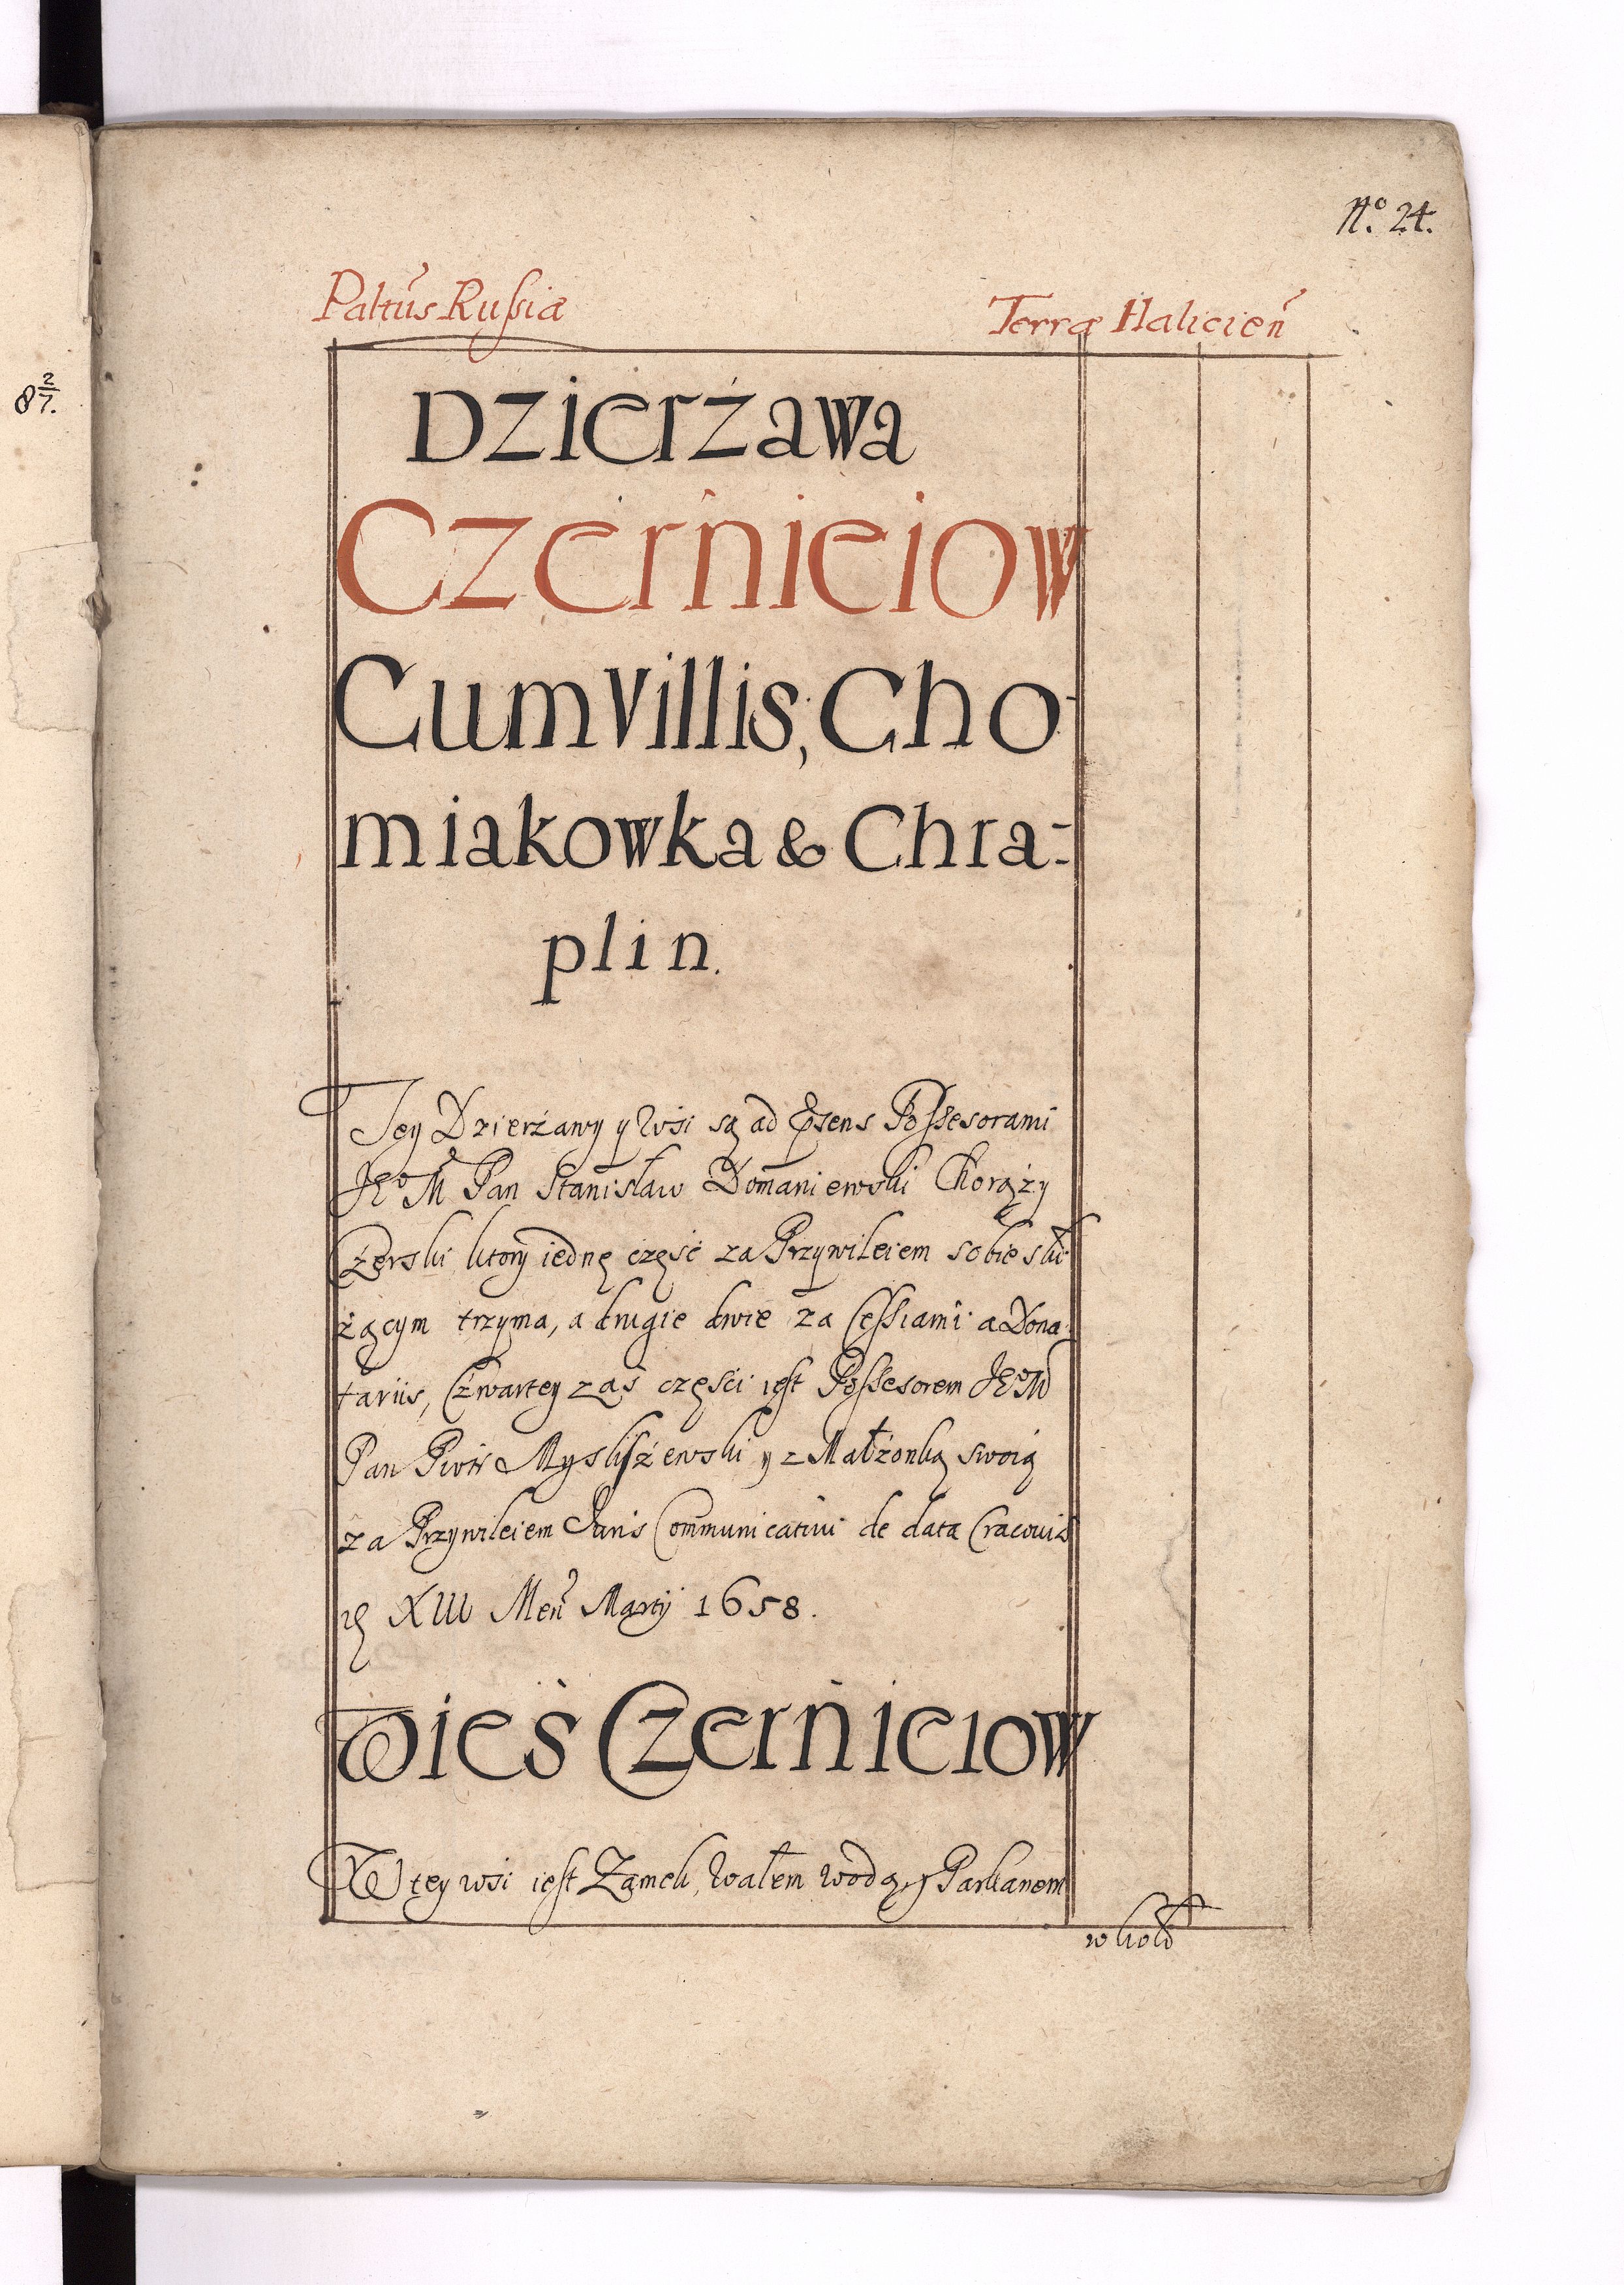 8 2/7.
No. 24.
Paltũs Russiæ Terræ Halicieñ
Dzierżawa
Czerńieiow
Cum Villis, Cho-
miakowka & Chra-
plin.
Tey Dzierżawy y Wśi są ad Psens Possesorami
JEo M Pan Stanisław Domaniewski Chorąży
ktory iednę część za Przywileiem sobie słu-
żącym trzyma, a drugie dwie za Cessiami a Dona-
tariis, Czwartey zaś częśći iest Possesorem JEoM
Pan Piotr y z Małżonką swoią
za Przywileiem Juris Communicatiui de data Cracouiæ
XIII Meñ Martij 1658.
Wieś Czerńieiow
W tey wsi iest Zamek, Wałem Wodą, y Parkanem
w koło